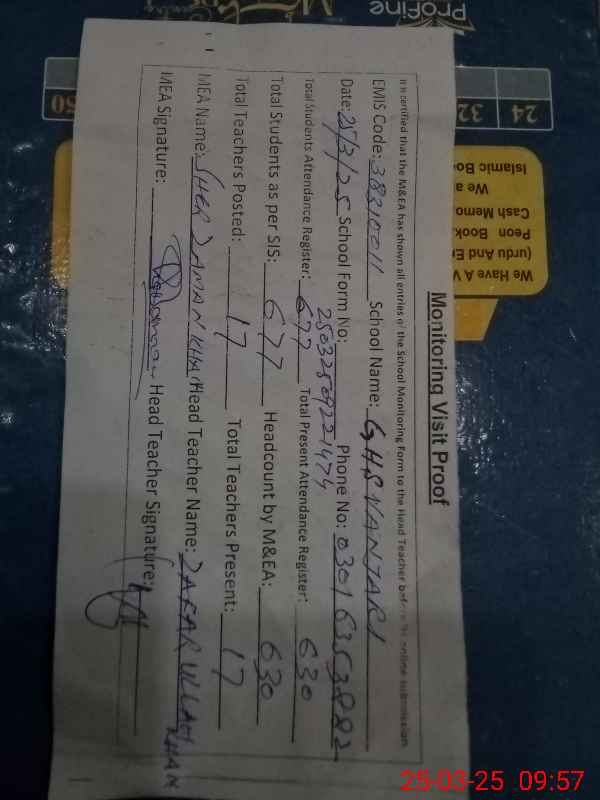 Monitoring Visit Proof
It is certified that the M&EA has shown all entries of the School Monitoring Form to the Head Teacher before online submission
EMIS Code: 38310011 School Name: GHS VANJARI
Date: 25/3/25 School Form No: 25032509221474 Phone No: 0301 6353882
Total Students Attendance Register: 677 Total Present Attendance Register: 630
Total Students as per SIS: 677 Headcount by M&EA: 630
Total Teachers Posted: 17 Total Teachers Present: 17
MEA Name: SHER ZAMAN KHAN Head Teacher Name: ZAFARULLAH KHAN
MEA Signature: Head Teacher Signature:
Profine
24 32
50
We Have A V
(urdu And En
Peon Book
Cash Memo
We a
Islamic Bo
25-03-25 09:57